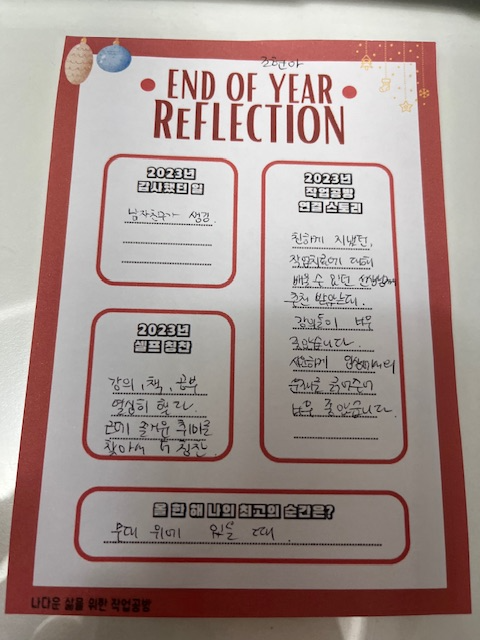 조현아
END OF YEAR
REFLECTION
2023년
감사했던 일
남자친구가 생김.
2023년
셀프 칭찬
강의, 책, 공부
열심히 했다.
즐거운 취미를
찾아서 칭찬
2023년
작업공방
연결 스토리
친하게 지냈던,
작업치료에 대해
배울 수 있던 선생님께
추천 받았는데.
강의들이 너무
좋았습니다.
시원하게 임상에서의
문제를 긁어주어
너무 좋았습니다.
올 한 해 나의 최고의 순간은?
무대 위에 있을 때.
나다운 삶을 위한 작업공방